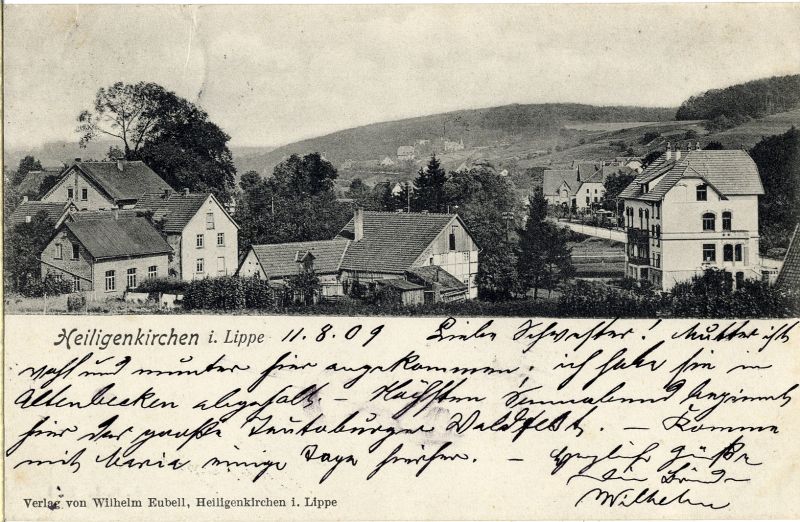 Heiligenkirchen i. Lippe 11.8.09 Liebe Schwester! Mutter ist
wohl und munter hier angekommen; ich habe sie in
Altenbecken abgeholt. - Nächsten Sonnabend beginnt
hier das große Teutoburger Waldfest. - Komme
mit Maria einige Tage hierher. - Herzliche Grüße
Dein Bruder
Wilhelm
Verlag von Wilhelm Eubell, Heiligenkirchen i. Lippe